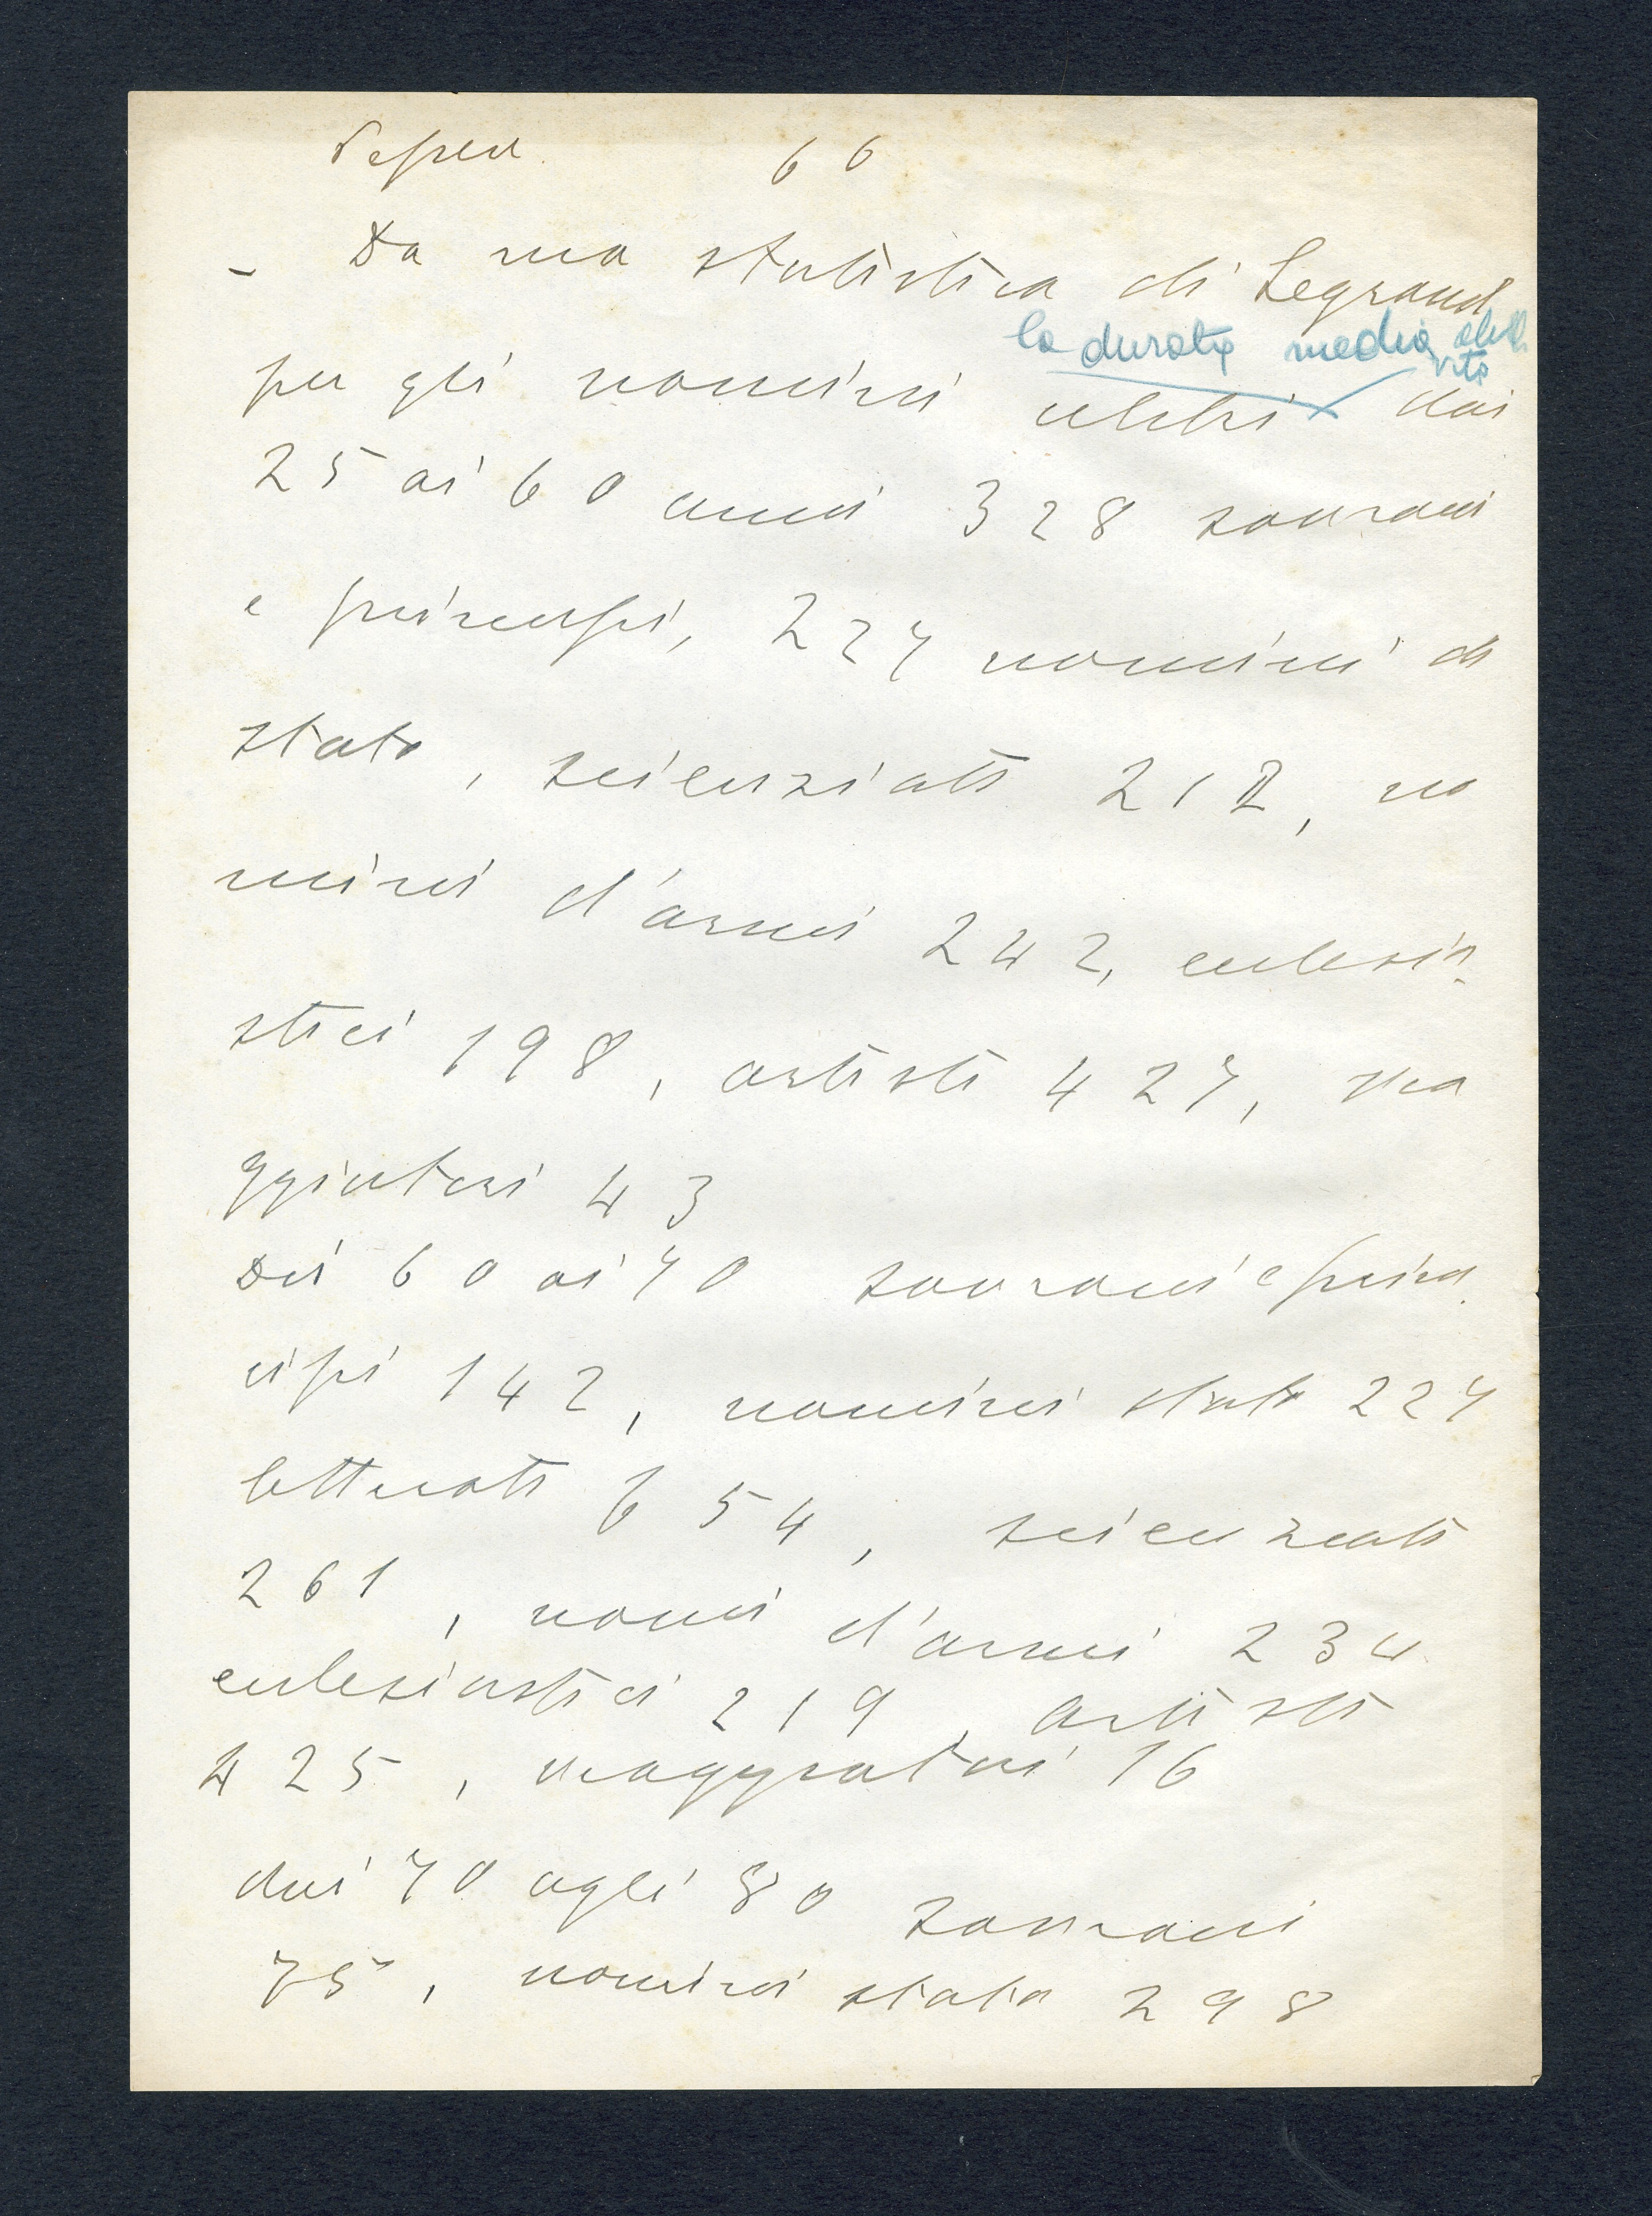 66
- Da una statistica di Legrand
la durata media della vita
per gli uomini celebri dai
25 ai 60 anni 328 sovrani
e principi, 227 uomini di
stato, scienziati 212, uo
mini d'armi 242, ecclesia
stici 198, artisti 427, via
ggiatori 43
Dai 60 ai 70 sovrani e prin
cipi 142, uomini stato 227
letterati 654, scienziati
261, uomi d'armi 234
ecclesiastici 219, artisti
425, viaggiatori 16
dai 70 agli 80 sovrani
75, uomini stato 298